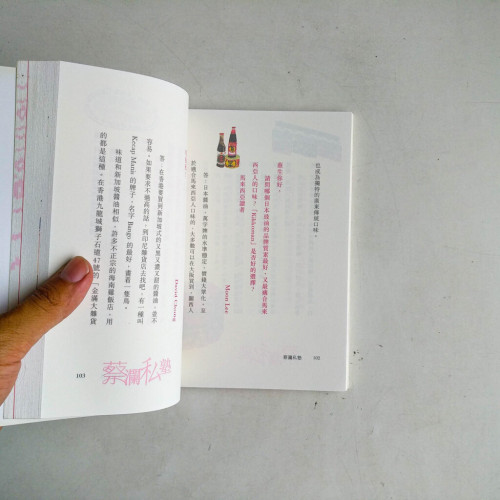 也成為獨特的廣東傳統口味。
蔡先生好。
請問哪個日本豉油的品牌質素最好，又最適合馬來
西亞人的口味？「Kikkoman」是否好的選擇？
Moon Lee
馬來西亞讀者
答：日本醬油，萬字牌的水準穩定，
於適合馬來西亞人口味的，大多數可以在大阪買到，關西人
蔡瀾私塾
102
David Chung
答：在香港要買到新加坡式的又黑又濃又甜的醬油，並不
容易，如果要求不過高的話，到印尼雜貨店去找吧，有一種叫
Kecap Manis 的牌子，名字 Bango 的最好，畫着一隻鳥。
味道和新加坡醬油相似，許多不正宗的海南雞飯店，用
的都是這種，在香港九龍城獅子石道47號的「金滿大雜貨
103
蔡瀾私塾